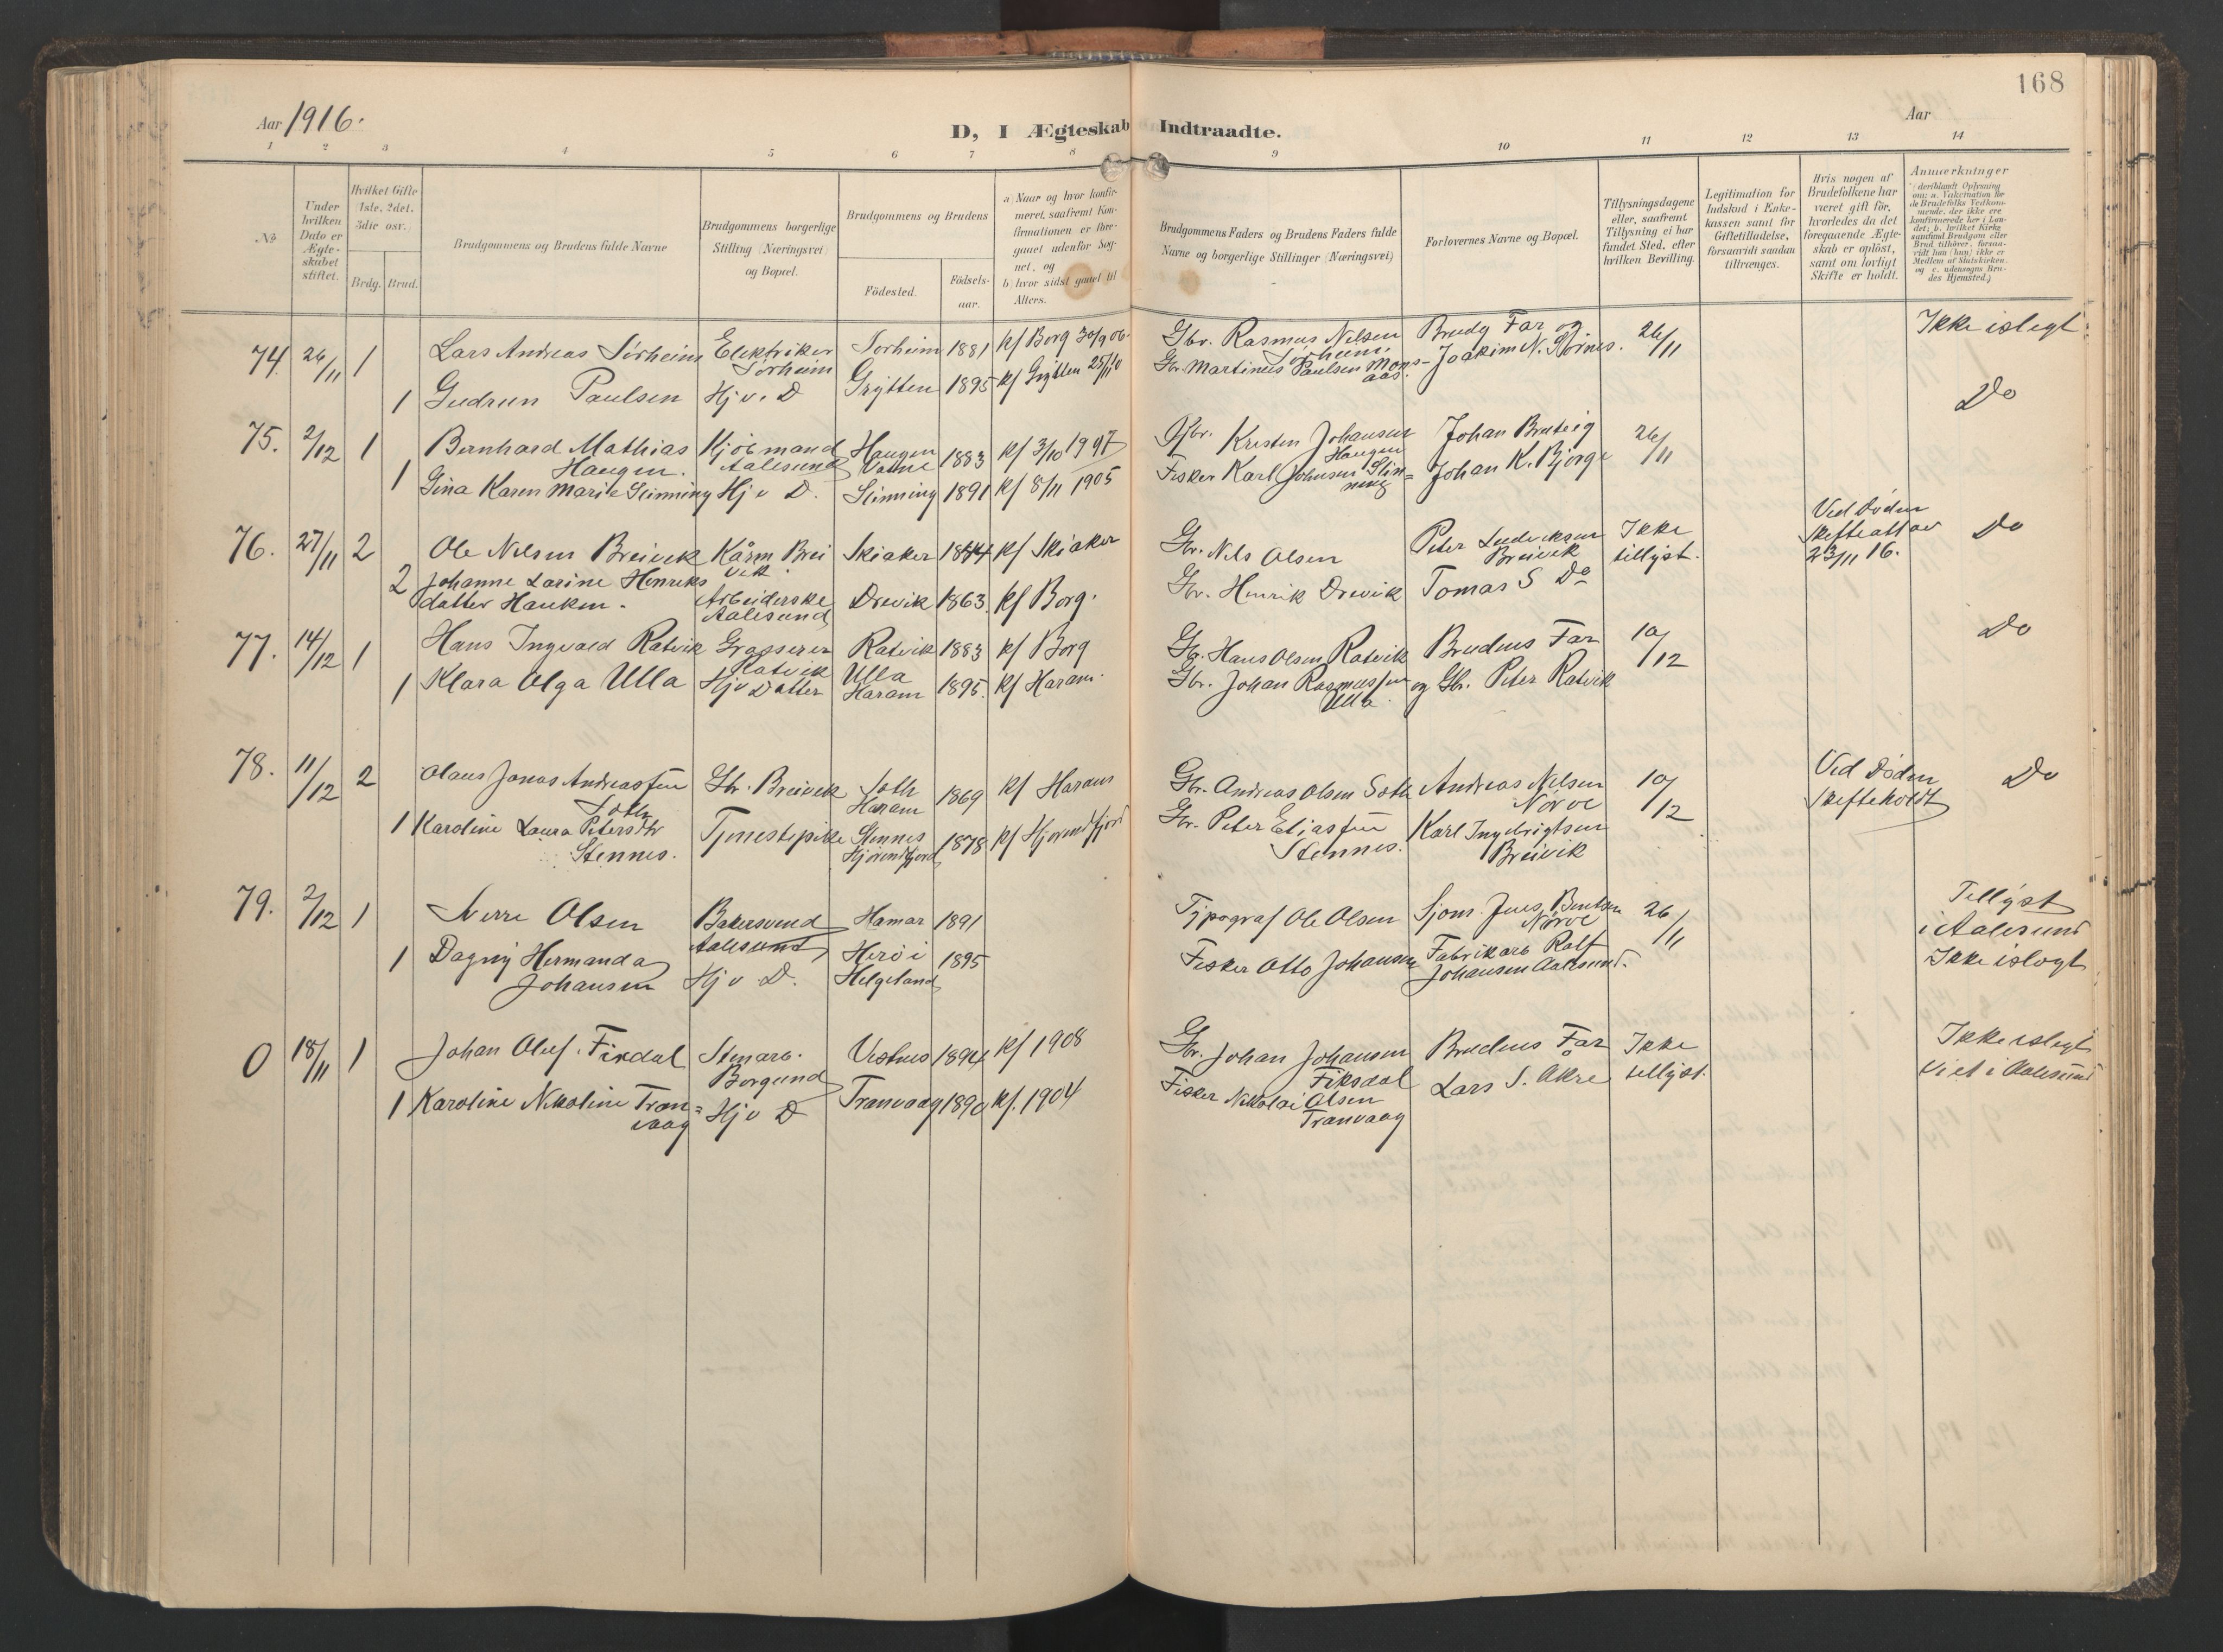 168
Aar 1916.
D, I Ægteskab Indtraadte.
Aar
1 2 3 4 5 6 7 8 9 10 11 12 13 14
No
Under hvilken Dato er Ægteskabet stiftet.
Hvilket Gifte (1ste, 2det, 3die osv.)
Brdg. Brud.
Brudgommens og Brudens fulde Navne
Brudgommens borgerlige Stilling (Næringsvei) og Bopæl.
Brudgommens og Brudens
Födested.
Födsels-aar.
a) Naar og hvor konfirmeret, saafremt Konfirmationen er foregaaet udenfor Sognet, og
b) hvor sidst gaaet til Alters.
Brudgommens Faders og Brudens Faders fulde Navne og borgerlige Stillinger (Næringsvei)
Forlovernes Navne og Bopæl.
Tillysningsdagene eller, saafremt Tillysning ei har fundet Sted, efter hvilken Bevilling.
Legitimation for Indskud i Enkekassen samt for Giftetilladelse, forsaavidt saadan tiltrænges.
Hvis nogen af Brudefolkene har været gift før, hvorledes da det foregaaende Ægteskab er oplöst, samt om lovligt Skifte er holdt.
Anmærkninger
74. 26/11 1 Lars Andreas Sørheim Elektriker Sørheim Sørheim 1881 kf Borg 30/9 06. Gbr. Rasmus Nilsen Sørheim Brudg Far og 26/11 Ikke islegt.
1 Gudrun Paulsen Hj v. D Grytten 1895 kf Grytten 25/11 10 Gbr. Martinus Paulsen Monsaas. Joakim N. Nørnes. Do
75. 2/12 1 Bernhard Mathias Haugen. Kjøbmand Aalesund Haugen Vatne 1883 kf 3/10 1997 Gbr. Kristen Johansen Haugen Johan Bruteig 26/11
1 Gina Karen Marie Slinning Hj v D. Slinning 1891 kf 8/11 1905 Fisker Karl Johnsen Slinning Johan K. Bjørge
76. 27/11 2 Ole Nilsen Breivik Kårm Breivik Skiaker 1844 kf Skiaker Gbr. Nils Olsen Peter Ludviksen Breivik Ikke tillyst. Ved Døden skifteattav 23/11 16. Do
2 Johanne Larine Henriksdatter Hauken. Arbeiderske Aalesund Drevik 1863. kf Borg. Gbr. Henrik Drevik Tomas S Do
77. 14/12 1 Hans Ingvald Ratvik Grosserer Ratvik Ratvik 1883 kf Borg Gbr. Hans Olsen Ratvik Brudens Far 10/12 Do
1 Klara Olga Ulla Hj v Datter Ulla Haram 1895. kf Haram. Gbr. Johan Rasmussen Ulla. og Gbr. Peter Ratvik
78. 11/12 2 Olaus Jonas Andreassen Soth Gbr. Breivik Soth Haram 1869 kf Haram Gbr. Andreas Olsen Soth Andreas Nilsen Nørve 10/12 Ved Døden Skifteholdt Do
1 Karoline Laura Petersdtr Stennes. Tjenestepike Stennes Hjørendfjord 1878 kf Hjørendfjord Gbr. Peter Eliassen Stennes. Karl Ingebrigtsen Breivik
79. 2/12 1 Sverre Olsen Bakersvend Aalesund Hamar 1891 Typograf Ole Olsen Sjøm. Jens Bentsen Nørve 26/11 Tillyst i Aalesund
1 Dagny Hermanda Johansen Hj v D. Herö i Helgeland 1895 Fisker Otto Johansen Fabrikarb Rolf Johansen Aalesund. Ikke islegt
0 18/11 1 Johan Oluf. Fixdal Stenarb. Borgund Vestnes 1894 kf 1908 Gbr. Johan Johansen Fiksdal Brudens Far Ikke tillyst. Ikke islegt viet i Aalesund
1 Karoline Nikoline Tranvaag Hj v D Tranvaag 1890 kf. 1904 Fisker Nikolai Olsen Tranvaag Lars S. Akre